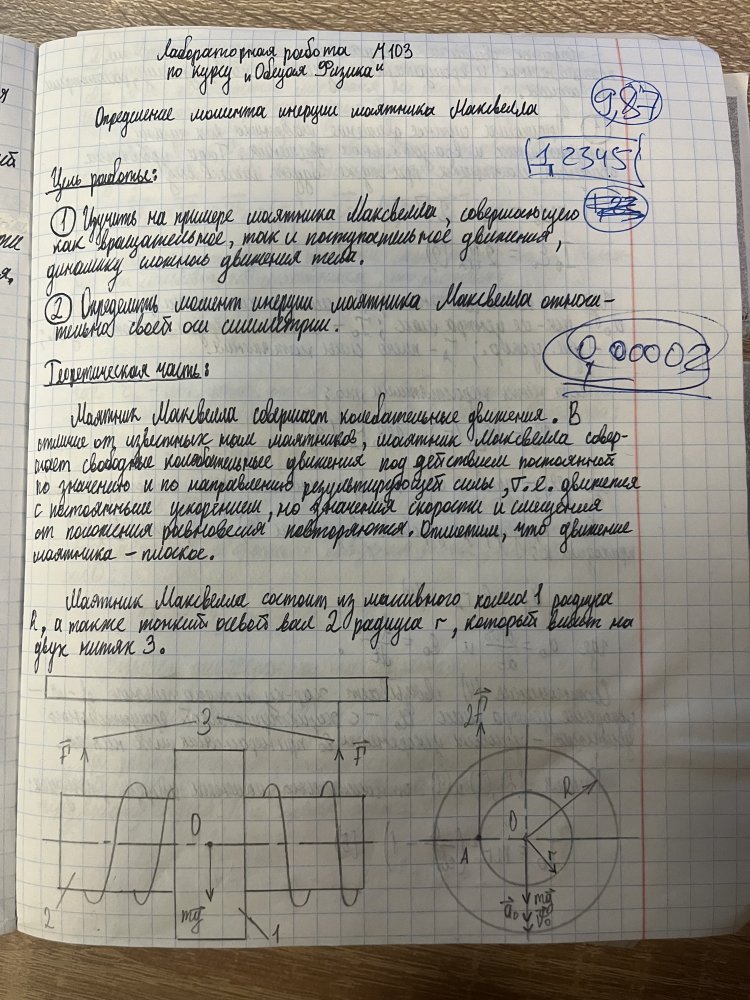 Лабораторная работа М103
по курсу "Общая Физика"
9,87
Определение момента инерции маятника Максвелла
1,2345
Цель работы:
① Изучить на примере маятника Максвелла, совершающего
как вращательное, так и поступательное движения,
динамику сложного движения тела.
② Определить момент инерции маятника Максвелла относи-
тельно своей оси симметрии.
0,00002
Теоретическая часть:
Маятник Максвелла совершает колебательные движения. В
отличие от известных нам маятников, маятник Максвелла совер-
шает свободные колебательные движения под действием постоянной
по значению и по направлению результирующей силы, т.е. движется
с постоянным ускорением, но значения скорости и смещения
от положения равновесия повторяются. Отметим, что движение
маятника – плоское.
Маятник Максвелла состоит из массивного колеса 1 радиуса
R, а также тонкий осевой вал 2 радиуса r, который висит на
двух нитях 3.
3
F F
2F
R
O
mg
2
1
A
O
r
a₀ mg
v₀